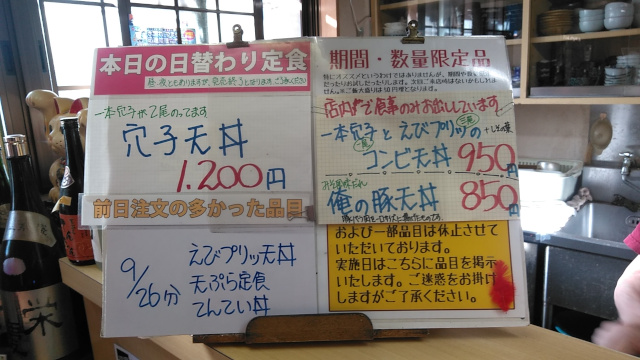 本日の日替わり定食
昼・夜ともありますが、完売終了となります。ご了承ください
一本穴子が2尾のってます
穴子天丼
1,200円
前日注文の多かった品目
9/26分
えびプリッ天丼
天ぷら定食
てんてい丼
期間・数量限定品
特にオススメというわけではありませんが、期間や数量が
店内がご食事のみお出ししています
一本穴子とえびプリッの
コンビ天丼 950円
俺の豚天丼 850円
および一部品目は休止させて
いただいております。
実施日はこちらに品目を掲示
いたします。ご迷惑をお掛け
しますがご了承ください。
栄